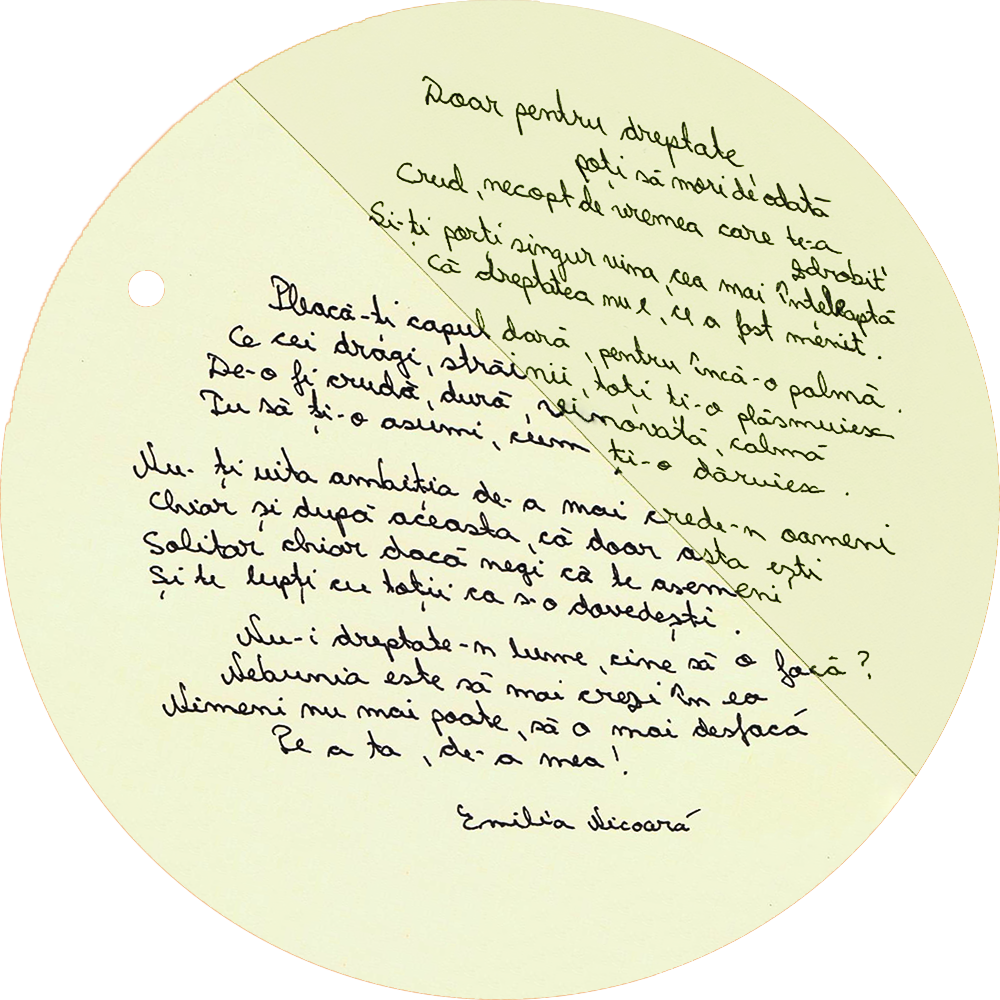 Doar pentru dreptate
poți să mori de odată
Crud, necopt de vremea care te-a
zdrobit
Și-ți porti singur vina, cea mai înteleaptă
Că dreptatea nu e, ce a fost menit.
Pleacă-ti capul dară, pentru încă-o palmă.
Ce cei drăgi, străinii, toți ti-o plăsmuiesc
De-o fi crudă, dură, vinovată, calmă
Tu să ți-o asumi, cum ți-o dăruiesc.
Nu-ți uita ambiția de-a mai crede-n oameni
Chiar și după aceasta, că doar asta ești
Solitar chiar dacă negi că te asemeni
Și te lupți cu toții ca s-o dovedești.
Nu-i dreptate-n lume, cine să o facă?
Nebunia este să mai crezi în ea
Nimeni nu mai poate, să o mai desfacă
Pe a ta, de-a mea!
Emilia Nicoară